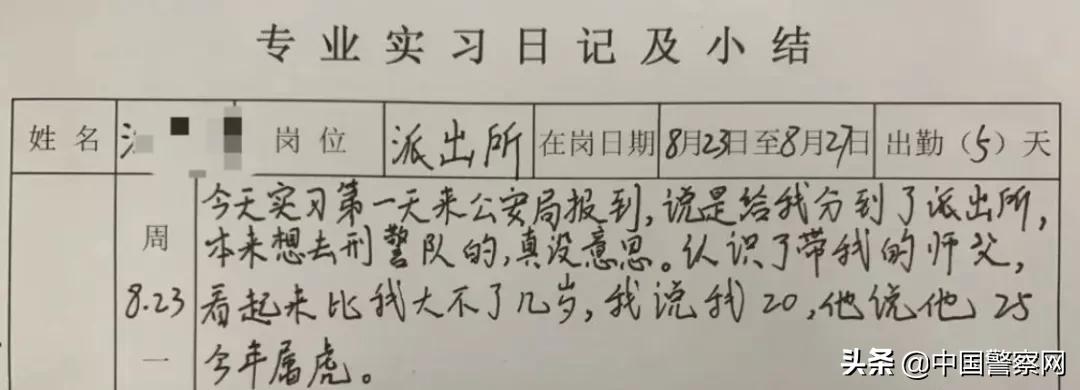 专业实习日记及小结
姓名 岗位 派出所 在岗日期 8月23日至8月27日 出勤（5）天
今天实习第一天来公安局报到，说是给我分到了派出所，
周 本来想去刑警队的，真没意思。认识了带我的师父，
8.23 看起来比我大不了几岁，我说我20，他说他25
一 今年属虎。
头条 @中国警察网